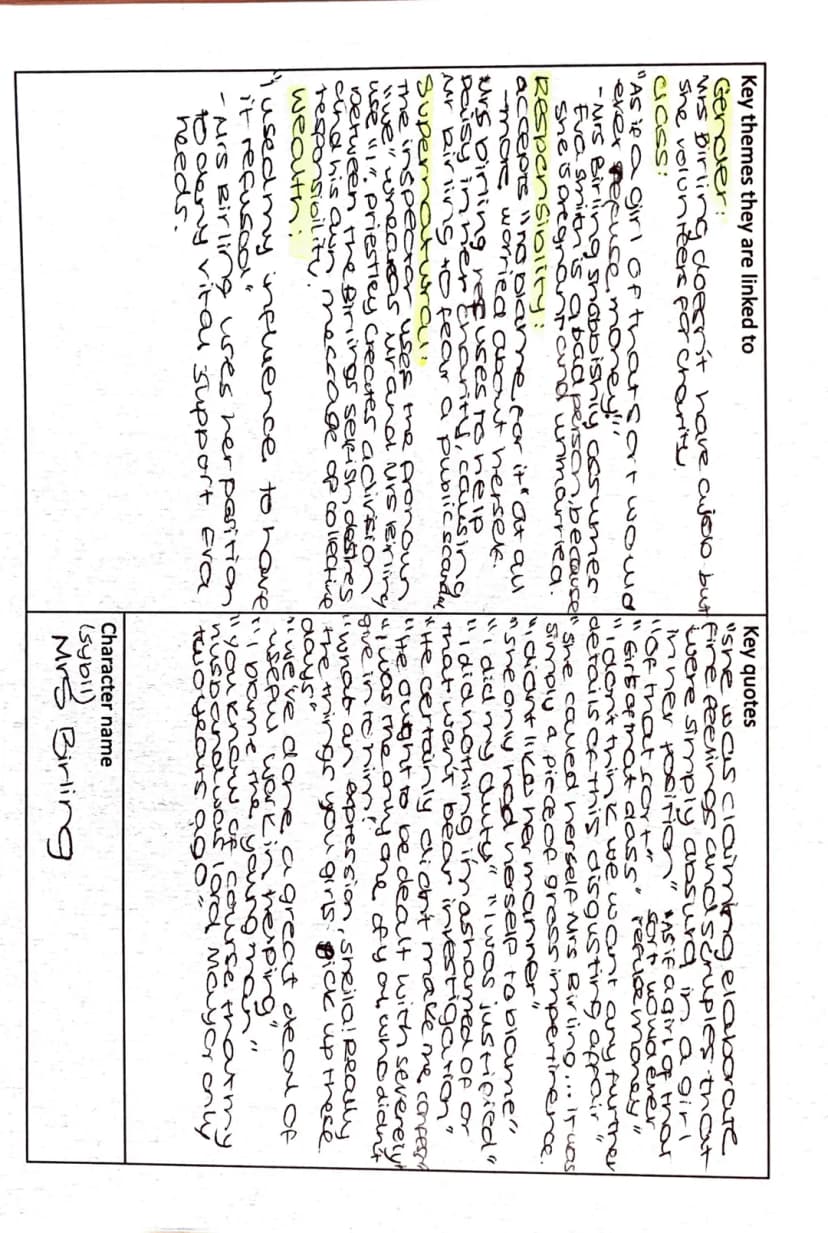 Key themes they are linked to
Gender:
Mrs Birling doesn't have a job but
she volunteers for charity.
Class:
"As if a girl of that sort would
ever refuse money!"
- Mrs Birling snobbishly assumes
Eva Smith is a bad person, because
she is pregnant and unmarried.
Responsibility:
accepts "no blame for it" at all
- more worried about herself.
Mrs Birling refuses to help
Daisy in her charity, causing
Mr Birling to fear a public scandal
Supernatural:
The inspector uses the pronoun
"we" whereas Mr and Mrs Birling
use "I". Priestley creates division
between the Birlings selfish desires
and his own message of collective
responsibility.
Wealth:
"I used my influence to have
it refused"
- Mrs Birling uses her position
to deny vital support Eva
needs.
Key quotes
"she was claiming elaborate
fine feelings and scruples that
were simply absurd in a girl
in her position" "As if a girl of that
"of that sort" sort would ever
"Girls of that class" refuse money"
"I don't think we want any further
details of this disgusting affair"
"She called herself Mrs Birling... it was
simply a piece of gross impertinence.
"I didn't like her manner"
"she only had herself to blame"
"I did my duty" "I was justified"
"I did nothing I'm ashamed of or
that won't bear investigation"
"He certainly didn't make me confess
"He ought to be dealt with severely"
"I was the only one of you who didn't
give in to him"
"What an expression, Sheila! Really
the things you girls pick up these
days"
"we've done a great deal of
useful work in helping"
"I blame the young man"
"you know of course that my
husband was Lord Mayor only
two years ago"
Character name
(Sybil)
Mrs Birling